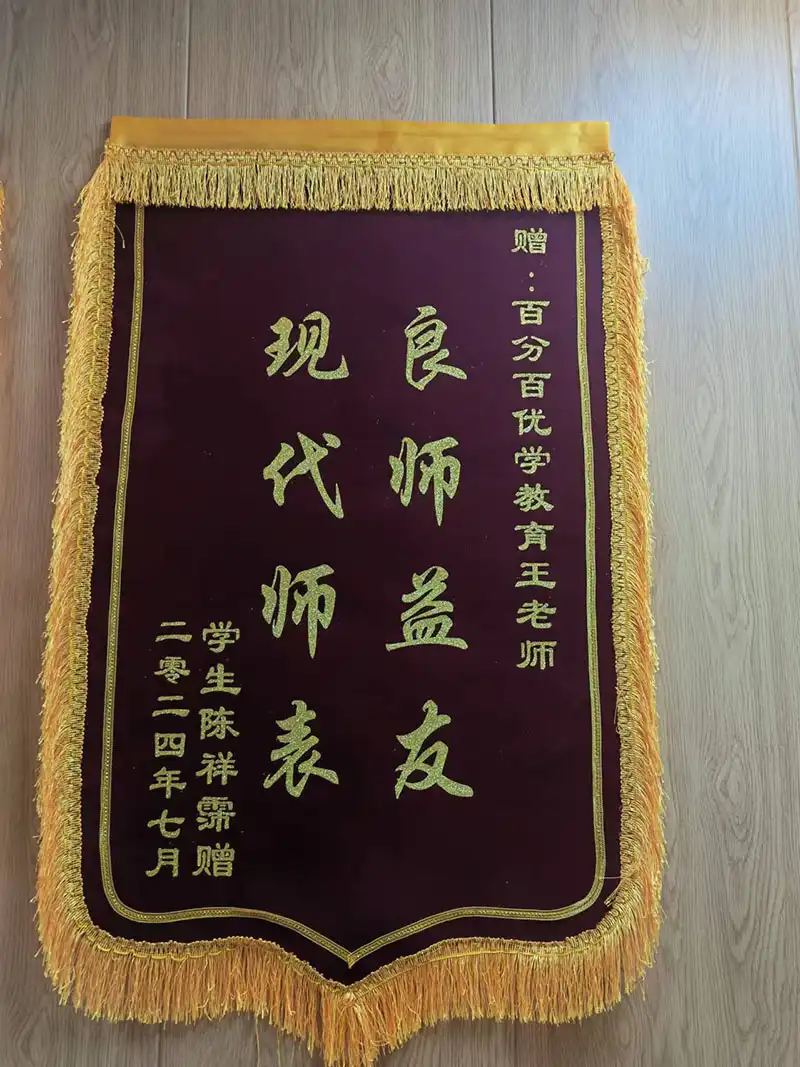 赠：百分百优学教育王老师
良师益友
现代师表
学生陈祥霈赠
二零二四年七月